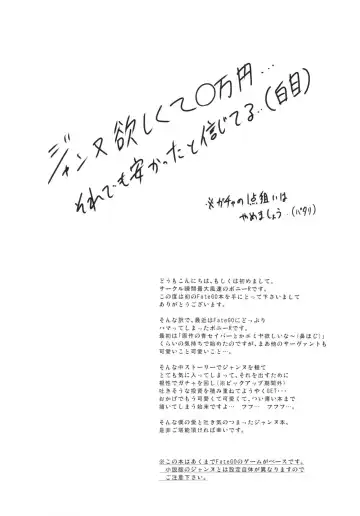 ジャンヌ欲しくて〇万円…
それでも安かったと信じてる…(白目)
※ガチャの1点狙いは
やめましょう…(パタリ)
どうもこんにちは、もしくは初めまして。
サークル瞬間最大風速のポニーRです。
この度は初のFateGO本を手にとって下さいまして
ありがとうございます。
そんな訳で、最近はFateGOにどっぷり
ハマってしまったポニーRです。
最初は「原作の青セイバーとかエミヤ欲しいな~(鼻ほじ)」
くらいの気持ちで始めたのですが、まあ他のサーヴァントも
可愛いこと可愛いこと…。
そんな中ストーリーでジャンヌを観て
とても気に入ってしまって、それを出すために
根性でガチャを回し(※ピックアップ期間外)
吐きそうな投資を積み重ねてようやくGET・・・
おかげでもう可愛くて可愛くて、つい薄い本まで
描いてしまう始末ですよ… フフ… フフフ…。
そんな僕の愛と吐き気のつまったジャンヌ本、
是非ご堪能頂ければ幸いです。
※この本はあくまでFateGOのゲームがベースです。
小説版のジャンヌとは設定自体が異なりますので
ご注意下さい。